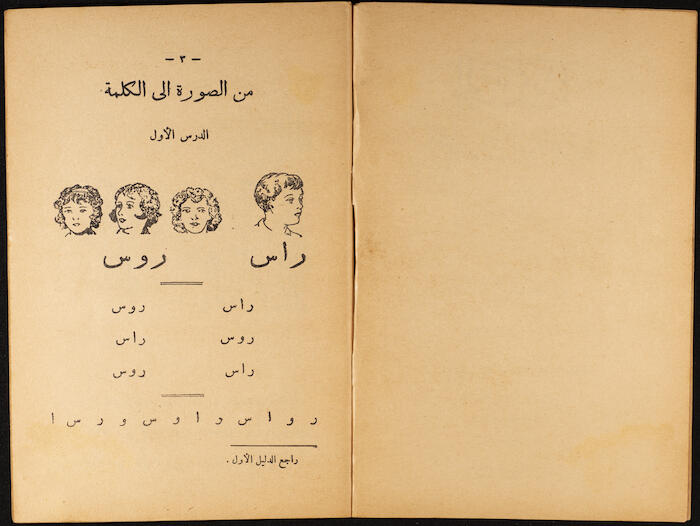 – ٣ –
من الصورة الى الكلمة
الدرس الأول
راس روس
راس روس
روس راس
راس روس
ر و ا س ر ا و س و ر س ا
راجع الدليل الأول .